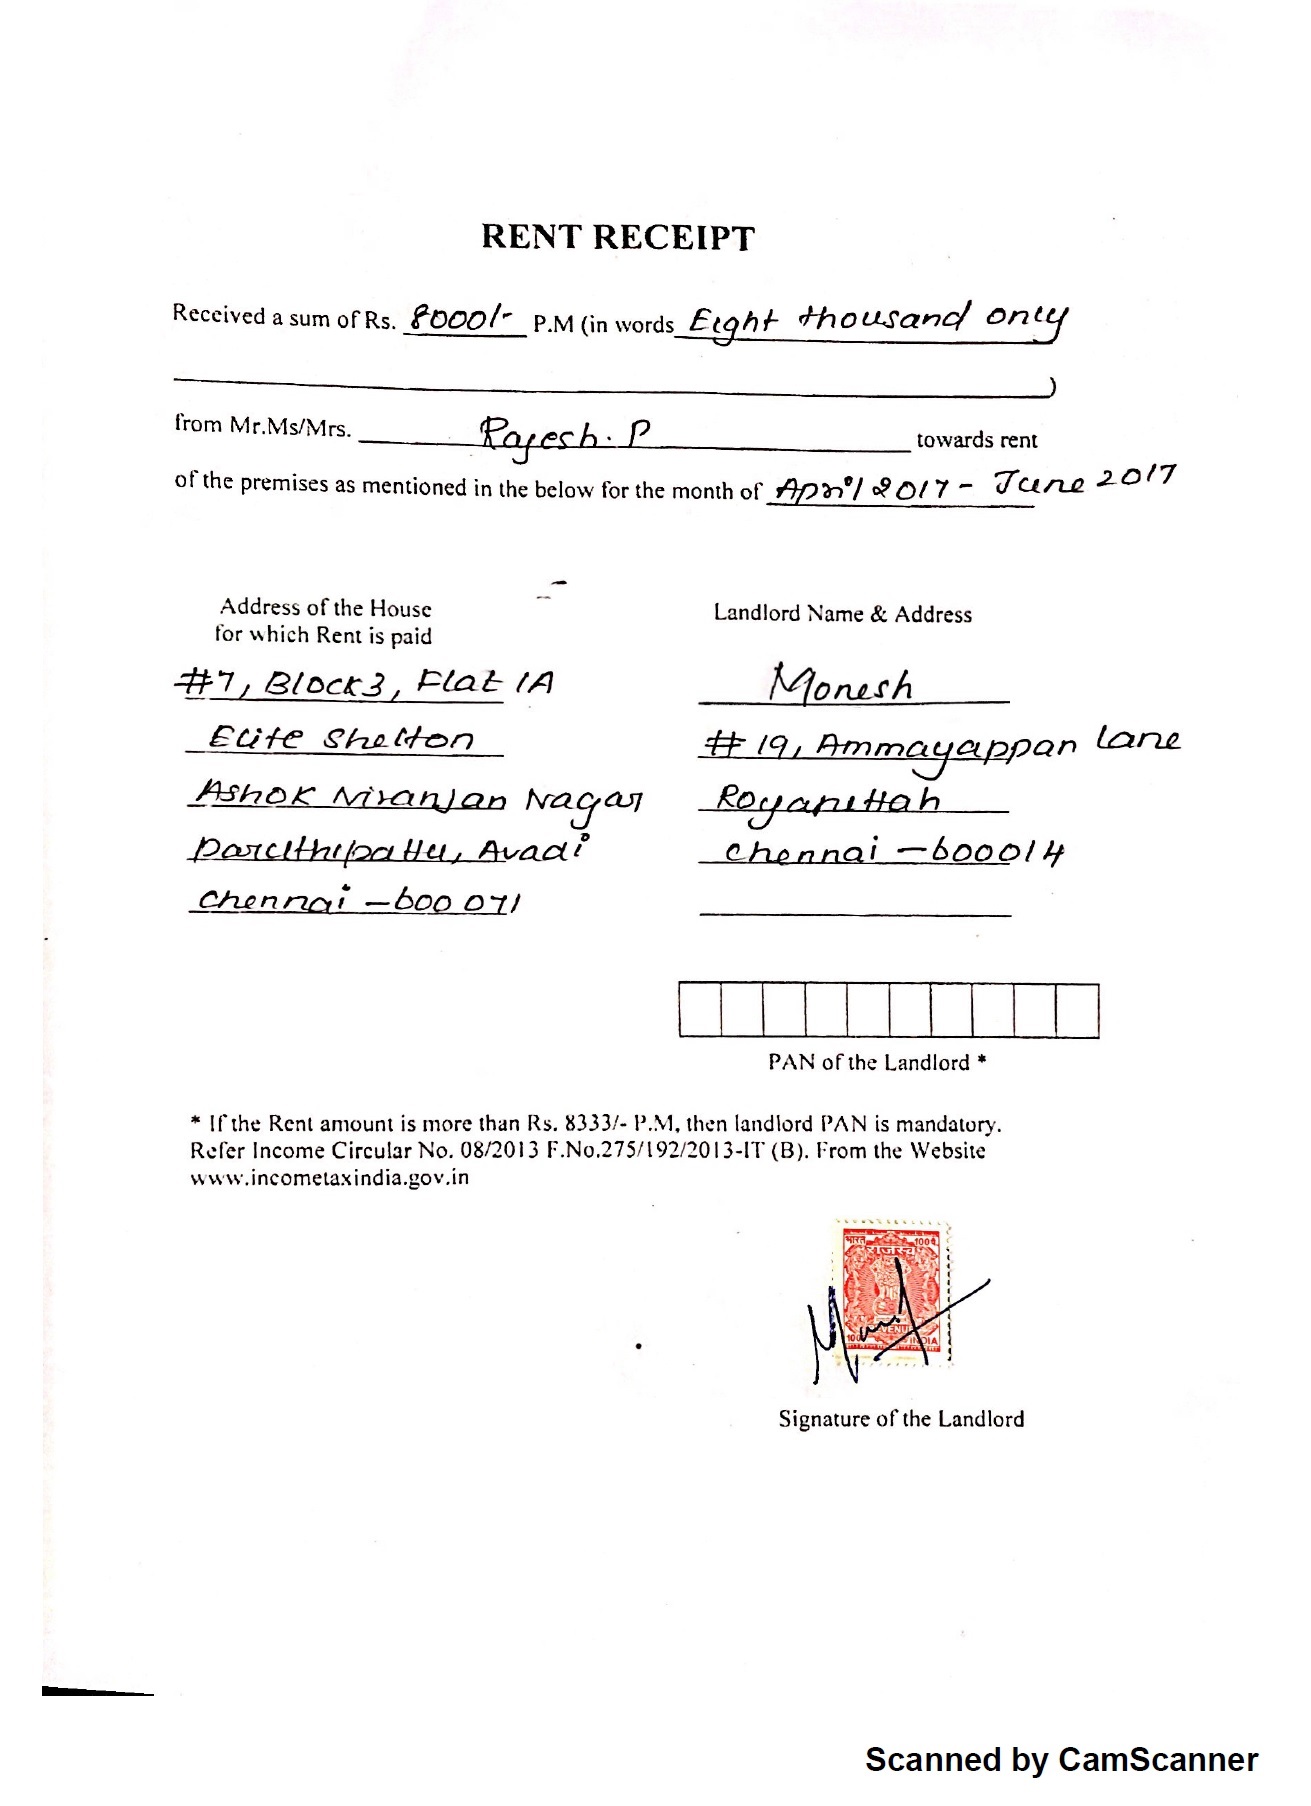 RENT RECEIPT
Received a sum of Rs. 8000/- P.M (in words Eight thousand only
)
from Mr.Ms/Mrs. Rajesh. P towards rent
of the premises as mentioned in the below for the month of April 2017 - June 2017
Address of the House
for which Rent is paid
#7, Block3, Flat 1A
Elite Shelton
Ashok Niranjan Nagar
Paruthipattu, Avadi
Chennai - 600 071
Landlord Name & Address
Monesh
# 19, Ammayappan Lane
Royapettah
Chennai - 600014
PAN of the Landlord *
* If the Rent amount is more than Rs. 8333/- P.M, then landlord PAN is mandatory.
Refer Income Circular No. 08/2013 F.No.275/192/2013-IT (B). From the Website
www.incometaxindia.gov.in
भारत 100
राजस्व
100 INDIA
Signature of the Landlord
Scanned by CamScanner